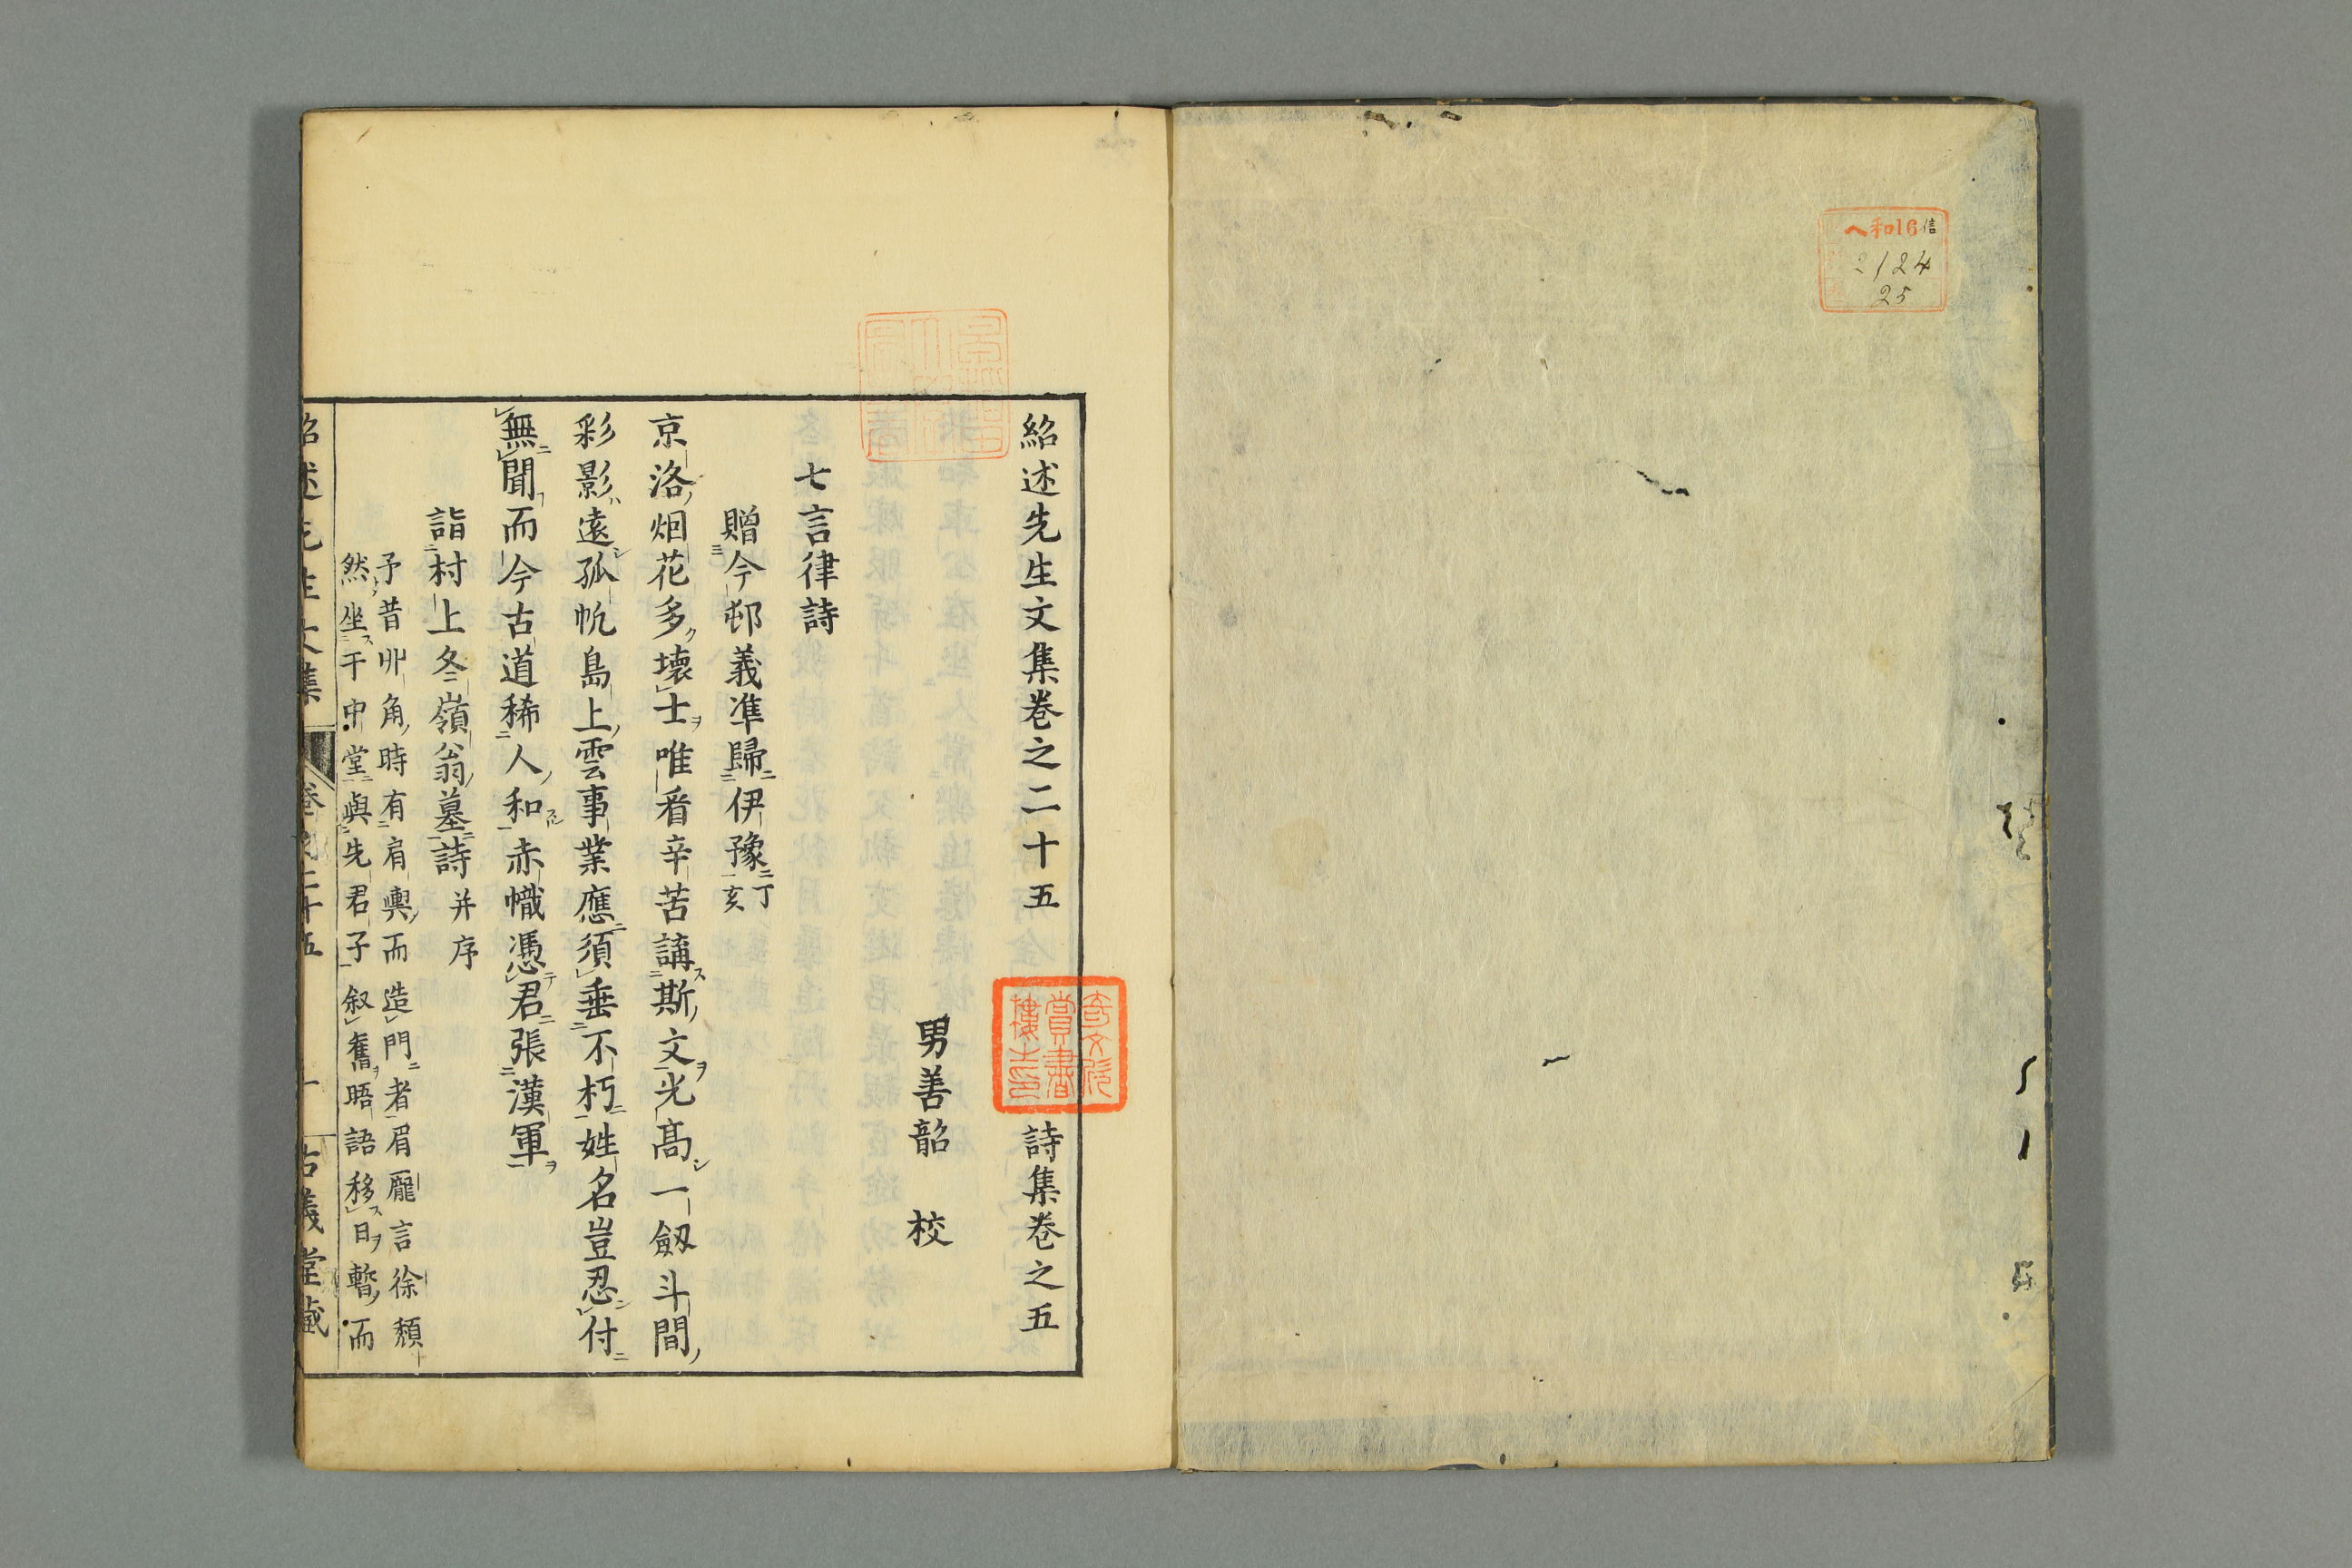 へ和16信
2124
25
紹述先生文集巻之二十五　詩集巻之五
男善韶　校
七言律詩
贈今邨義準歸伊豫丁亥
京洛烟花多壞士唯看辛苦講斯文光高一劔斗間
彩影遠孤帆島上雲事業應須垂不朽姓名豈忍付
無聞而今古道稀人和赤幟憑君張漢軍
詣村上冬嶺翁墓詩并序
予昔丱角時有肩輿而造門者眉厖言徐頽
然坐于中堂與先君子叙舊晤語移日暫而
奇文欣
賞書
樓之印